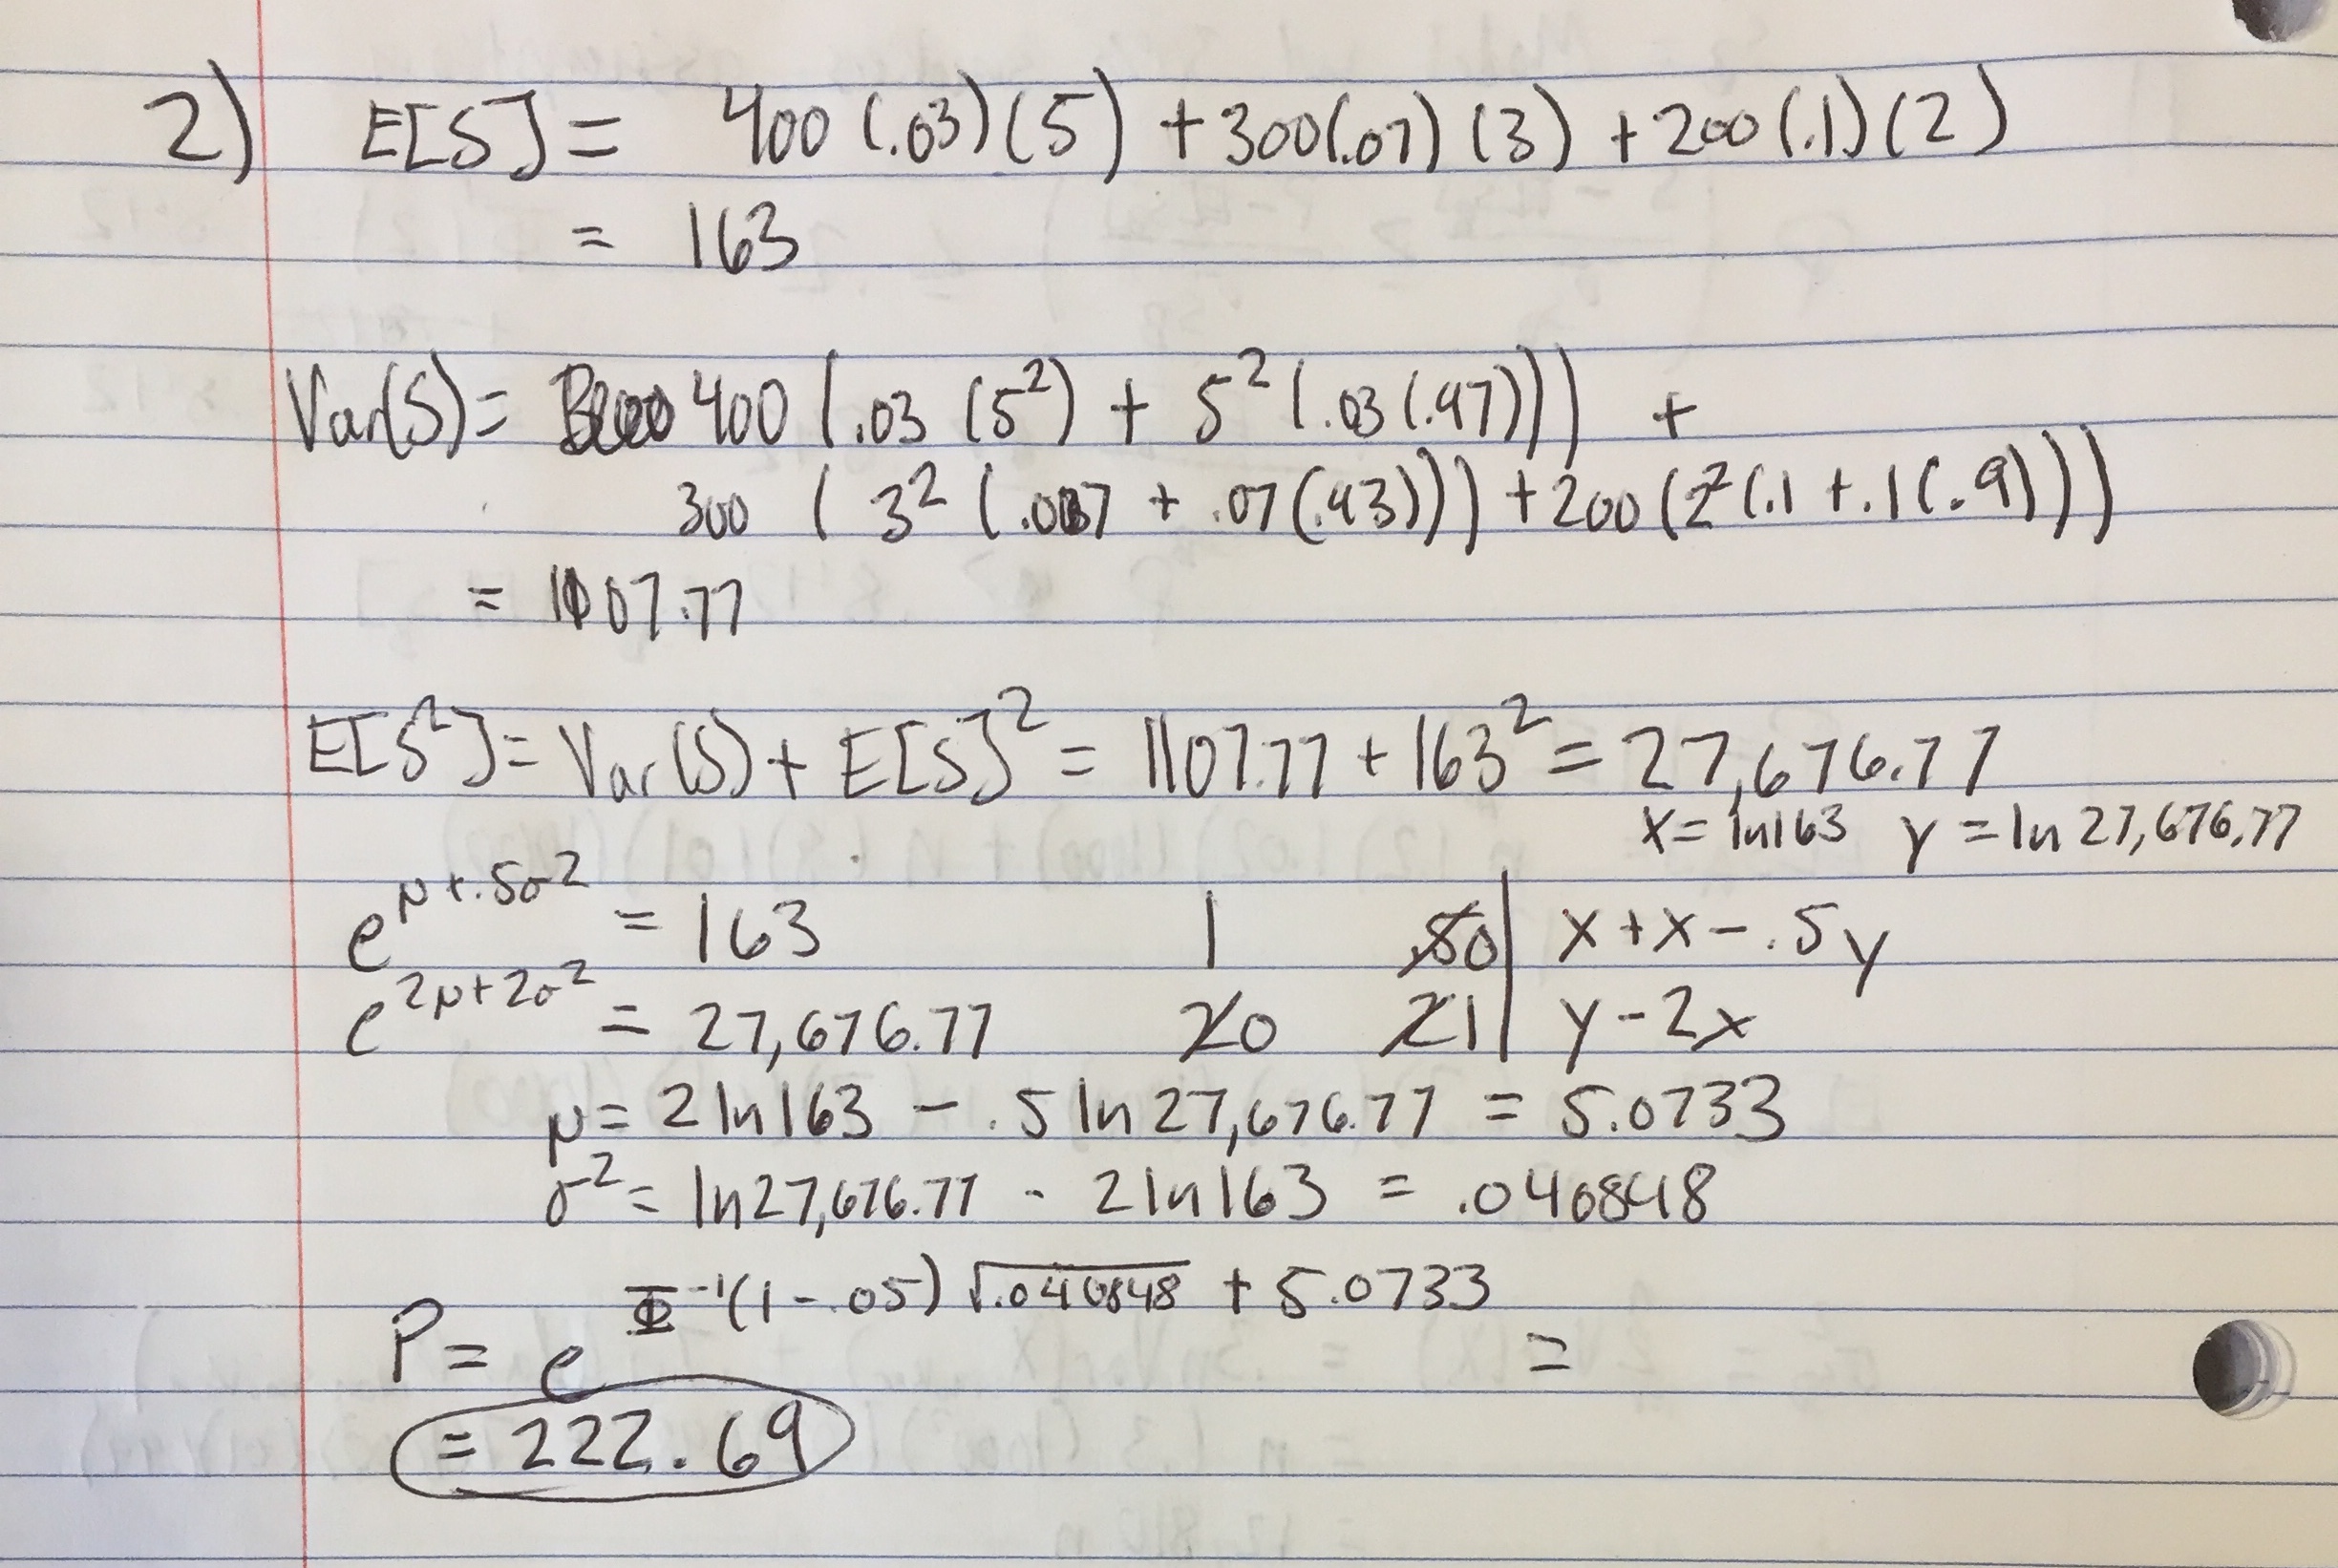 2) E[S] = 400 (.03)(5) + 300(.07)(3) + 200(.1)(2)
= 163
Var(S) = 400 (.03 (5²) + 5² (.03(.97))) +
300 ( 3² (.07 + .07(.93))) + 200 (2(.1 + .1(.9)))
= 1107.77
E[S²] = Var(S) + E[S]² = 1107.77 + 163² = 27,676.77
x = ln163 y = ln 27,676.77
e^{μ+.5σ²} = 163 1 .50 | x + x - .5y
e^{2μ+2σ²} = 27,676.77 20 21 | y - 2x
μ = 2 ln163 - .5 ln 27,676.77 = 5.0733
σ² = ln27,676.77 - 2 ln163 = .040848
P = e^{Φ⁻¹(1-.05) √.040848 + 5.0733} =
= 222.69